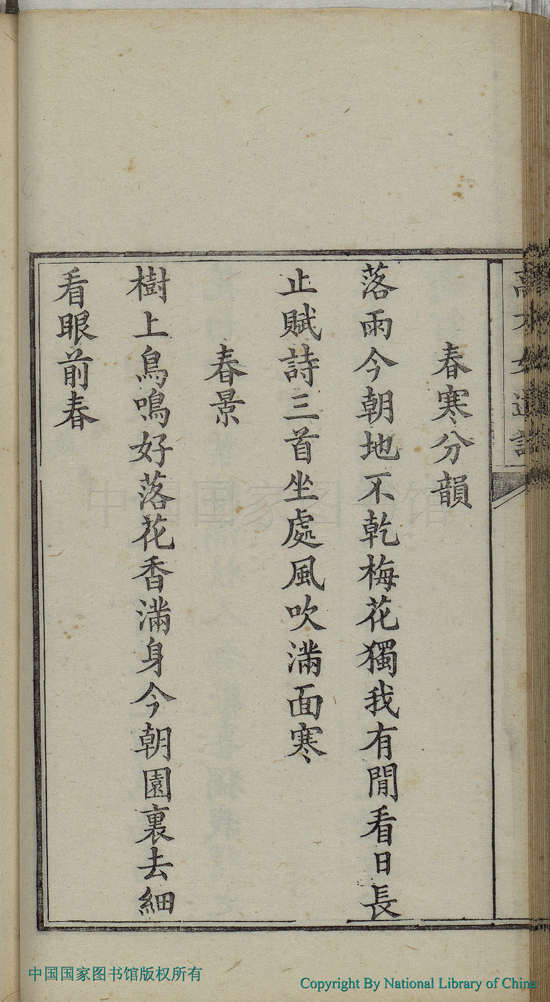 春寒分韻
落雨今朝地不乾梅花獨我有閒看日長
止賦詩三首坐處風吹滿面寒
春景
樹上鳥鳴好落花香滿身今朝園裏去細
看眼前春
中国国家图书馆
中国国家图书馆版权所有
Copyright By National Library of China